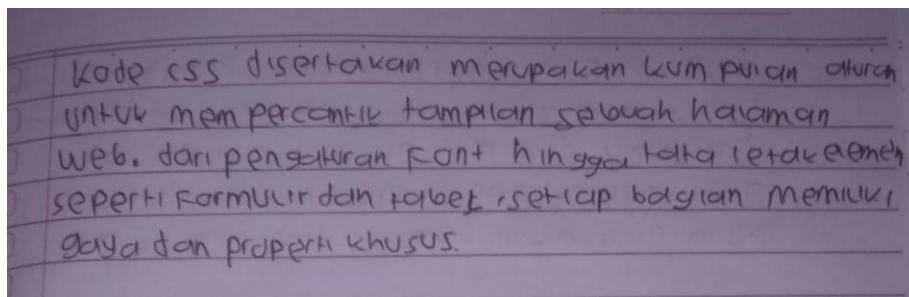 Kode CSS disertakan merupakan kumpulan aturan
untuk mempercantik tampilan sebuah halaman
web. dari pengaturan font hingga tata letak elemen
seperti formulir dan tabel, setiap bagian memiliki
gaya dan properti khusus.